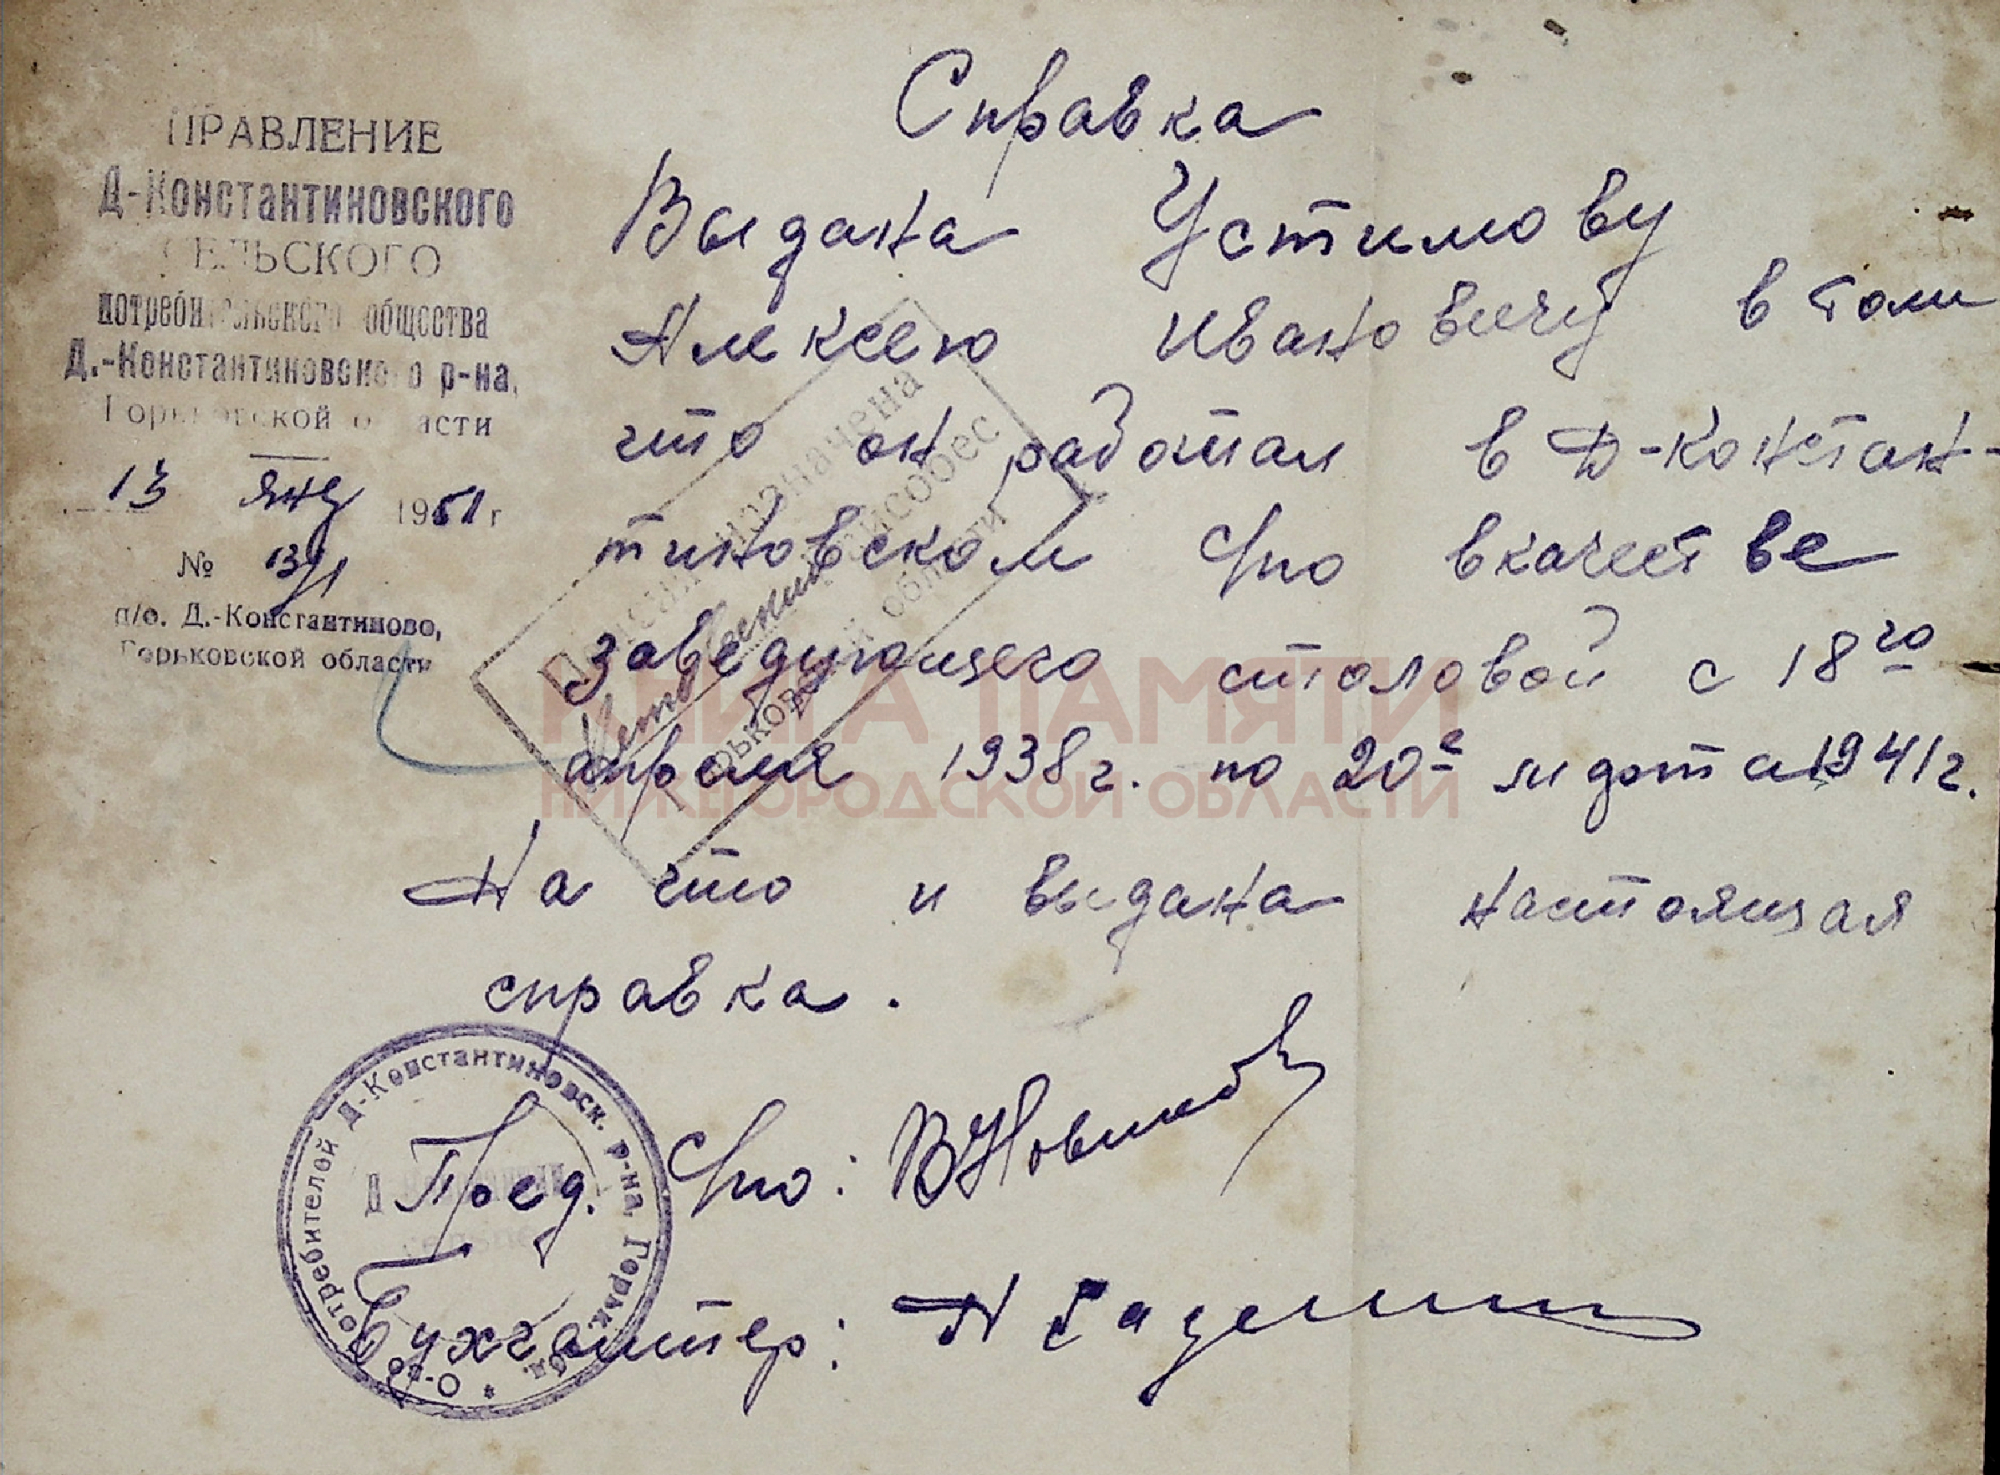 ПРАВЛЕНИЕ
Д-Константиновского
СЕЛЬСКОГО
потребительского общества
Д.-Константиновского р-на,
Горьковской области
13 янв 1951 г
№ 13/1
п/о. Д.-Константиново,
Горьковской области
Справка
Выдана Устимову
Алексею Ивановичу в том
что он работал в Д-Констан-
тиновском Спо в качестве
заведующего столовой с 18го
апреля 1938 г. по 20е марта 1941 г.
На что и выдана настоящая
справка.
Пред. Спо: В Новиков
Бухгалтер:
Пенсия назначена
райсобес
Горьковской области
О-во потребителей Д-Константиновск. р-на, Горьк. обл. *
КНИГА ПАМЯТИ
НИЖЕГОРОДСКОЙ ОБЛАСТИ